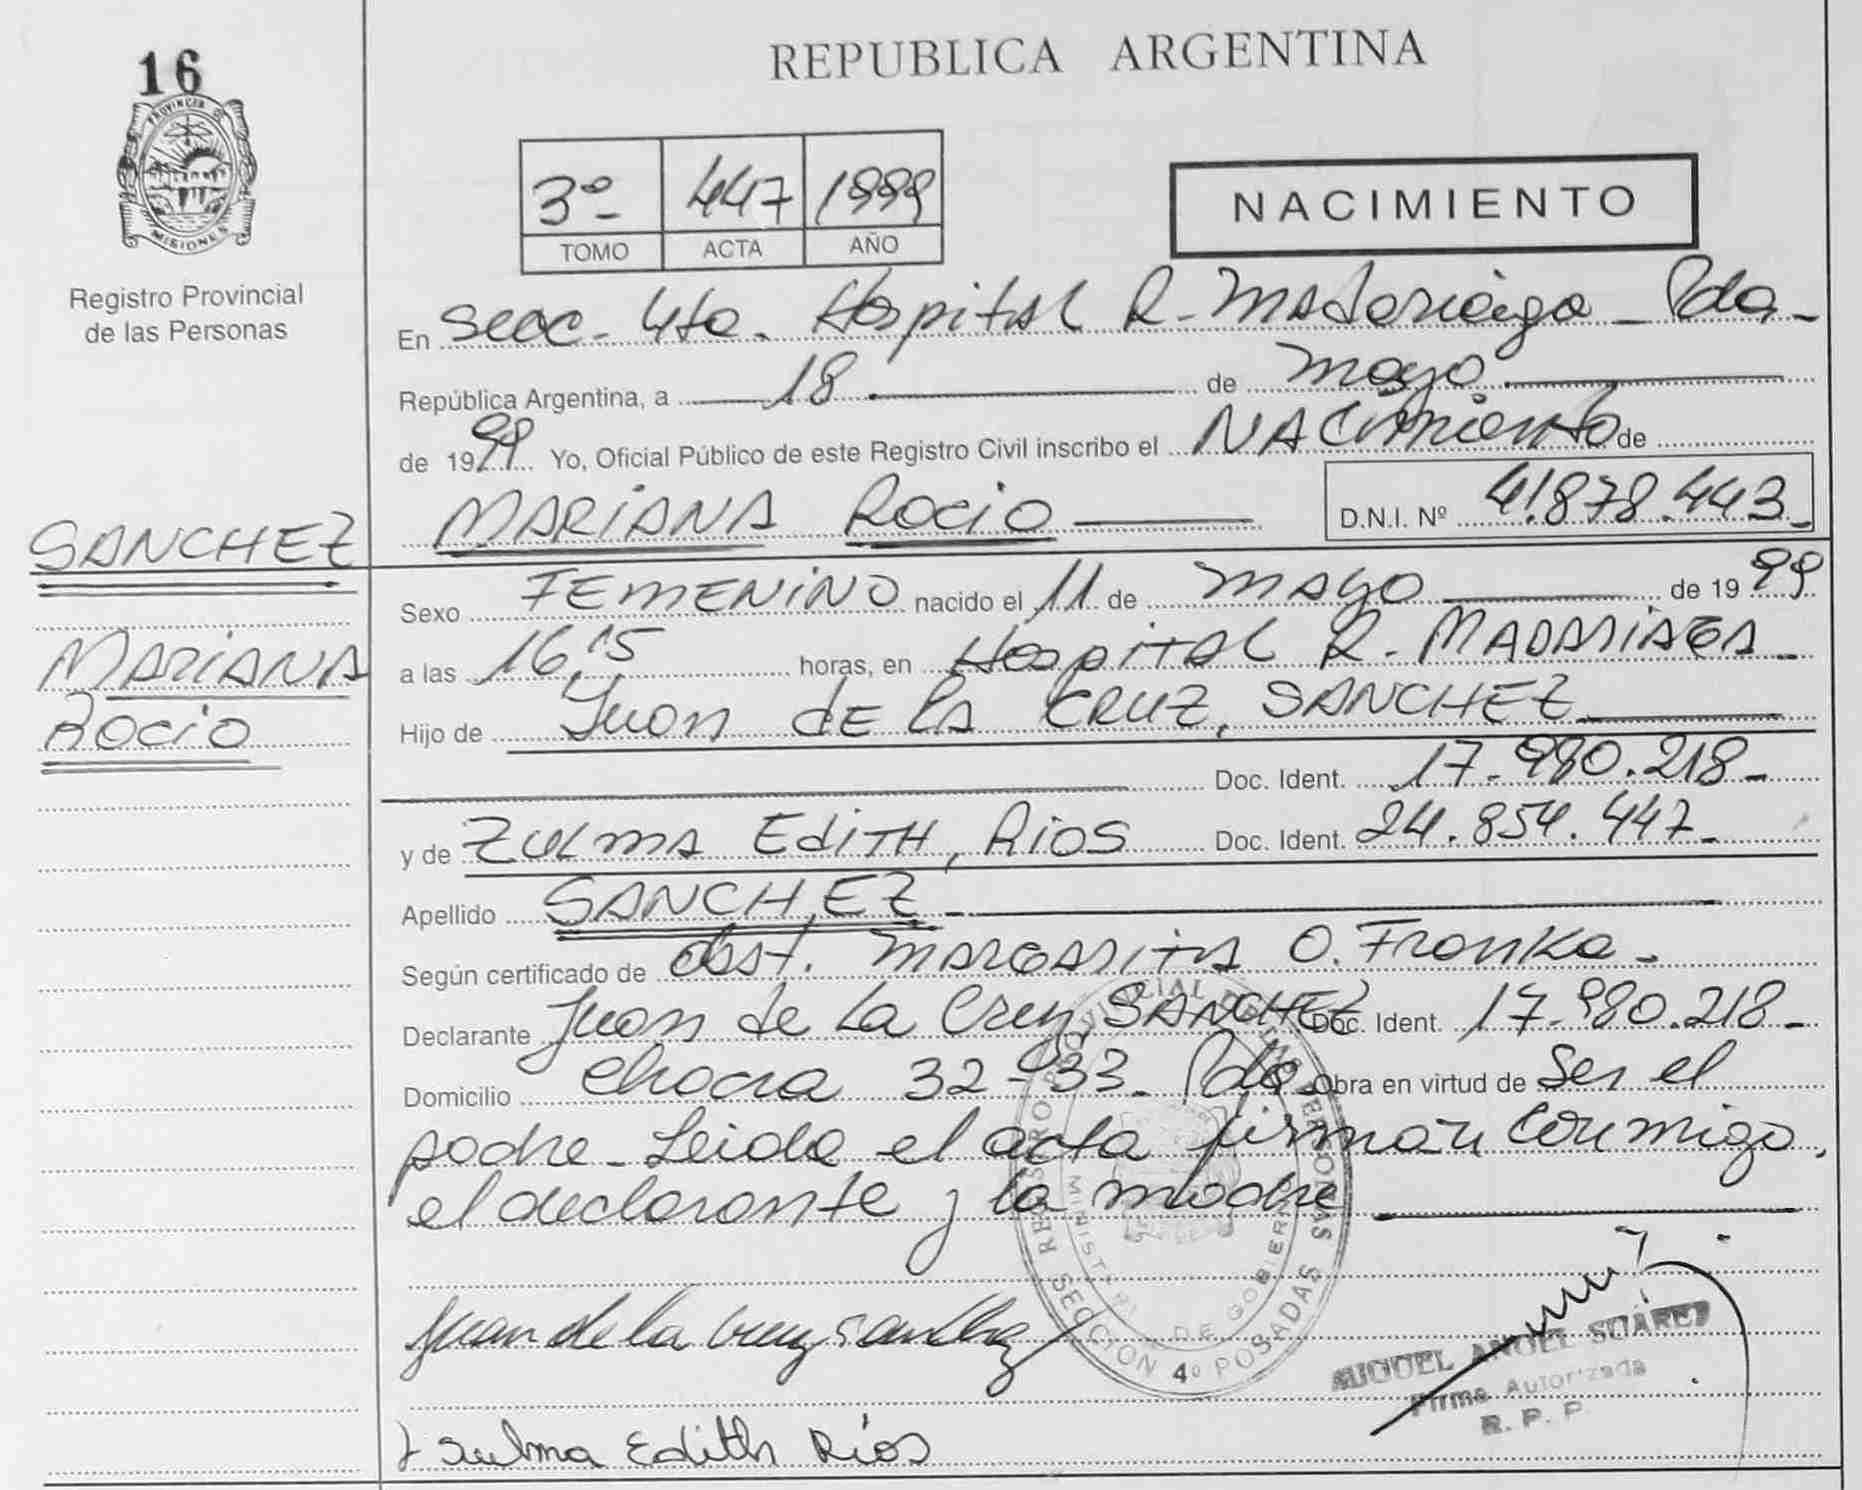 16
PROVINCIA DE
MISIONES
Registro Provincial
de las Personas
SANCHEZ
MARIANA
ROCIO
REPUBLICA ARGENTINA
3º 447 1999
TOMO ACTA AÑO
NACIMIENTO
En Secc. 4ta. Hospital R. Madariaga - Pdas -
República Argentina, a 18 de mayo
de 1999 Yo, Oficial Público de este Registro Civil inscribo el NACimiento de
MARIANA ROCIO D.N.I. Nº 41.878.443
Sexo FEMENINO nacido el 11 de MAYO de 1999
a las 16,15 horas, en Hospital R. MADARIAGA
Hijo de Juan de la CRUZ, SANCHEZ
Doc. Ident. 17.980.218
y de ZULMA EdiTH, Rios Doc. Ident. 24.854.447
Apellido SANCHEZ
Según certificado de obst. MARGARITA O. Franke
Declarante Juan de La Cruz, SANCHEZ Doc. Ident. 17.980.218
Domicilio Chacra 32-33 Pdas Obra en virtud de Ser el
padre - Leida el acta firman conmigo,
el declarante y la madre
REGISTRO PROVINCIAL DE LAS PERSONAS
MINISTERIO DE GOBIERNO
SECCION 4º POSADAS
Juan de la cruz sanchez
MIGUEL ANGEL SUAREZ
Firma Autorizada
R. P. P.
Zulma Edith Ríos